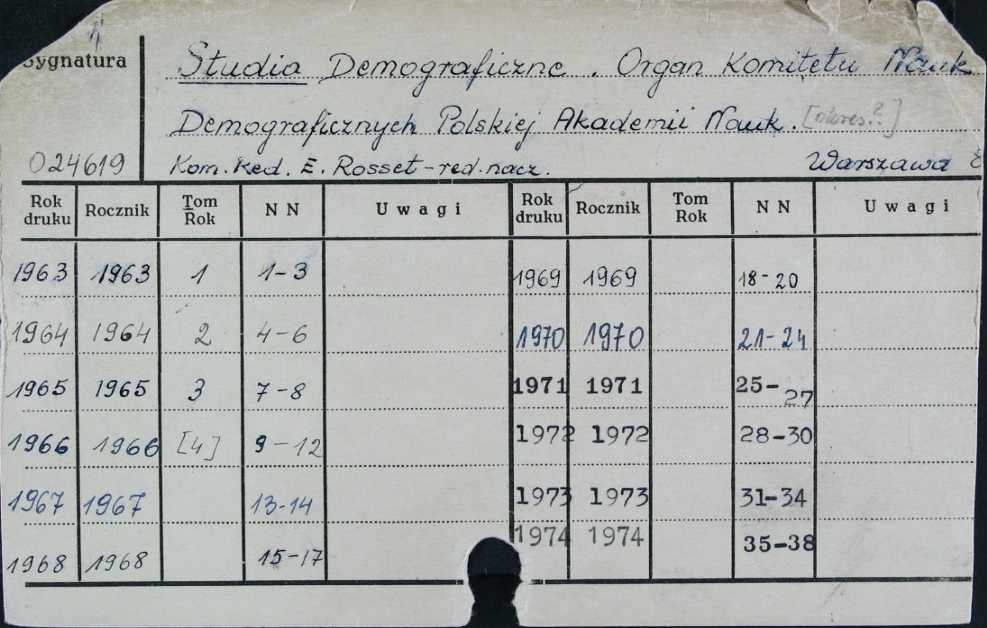 Sygnatura
Studia Demograficzne. Organ Komitetu Nauk
Demograficznych Polskiej Akademii Nauk. [okres.?]
024619 Kom. Red. E. Rosset - red. nacz. Warszawa
Rok druku Rocznik Tom Rok N N Uwagi Rok druku Rocznik Tom Rok N N Uwagi
1963 1963 1 1-3 1969 1969 18-20
1964 1964 2 4-6 1970 1970 21-24
1965 1965 3 7-8 1971 1971 25-27
1966 1966 [4] 9-12 1972 1972 28-30
1967 1967 13-14 1973 1973 31-34
1968 1968 15-17 1974 1974 35-38